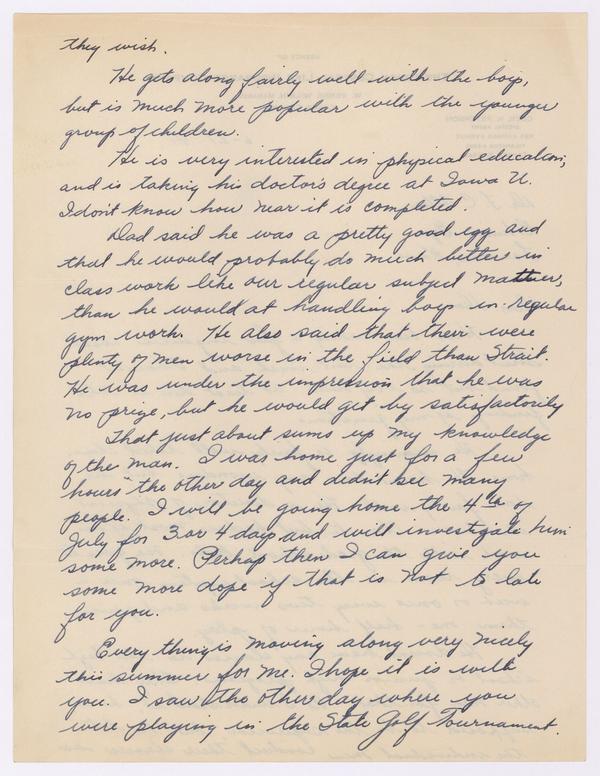 they wish.
He gets along fairly well with the boys,
but is much more popular with the younger
group of children.
He is very interested in physical education,
and is taking his doctor's degree at Iowa U.
I don't know how near it is completed.
Dad said he was a pretty good egg and
that he would probably do much better in
class work like our regular subject matter,
than he would at handling boys in regular
gym work. He also said that their were
plenty of men worse in the field than Strait.
He was under the impression that he was
no prize, but he would get by satisfactorily
That just about sums up my knowledge
of the man. I was home just for a few
hours the other day and didn't see many
people. I will be going home the 4th of
July for 3 or 4 days and will investigate him
some more. Perhap then I can give you
some more dope if that is not to late
for you.
Everything is moving along very nicely
this summer for me. I hope it is with
you. I saw the other day where you
were playing in the State Golf Tournament.